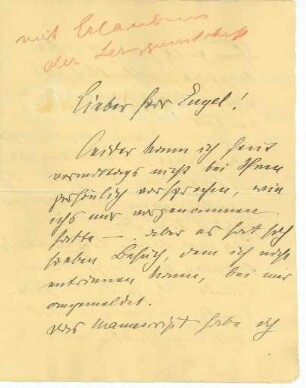 mit Erlaubnis
der
Lieber Herr Engel!
Leider kann ich heut
vormittags nicht bei Ihnen
persönlich vorsprechen, wie
ichs mir vorgenommen
hatte — aber es hat sich
soeben Besuch, dem ich nicht
entrinnen kann, bei mir
angemeldet.
Das Manuscript habe ich